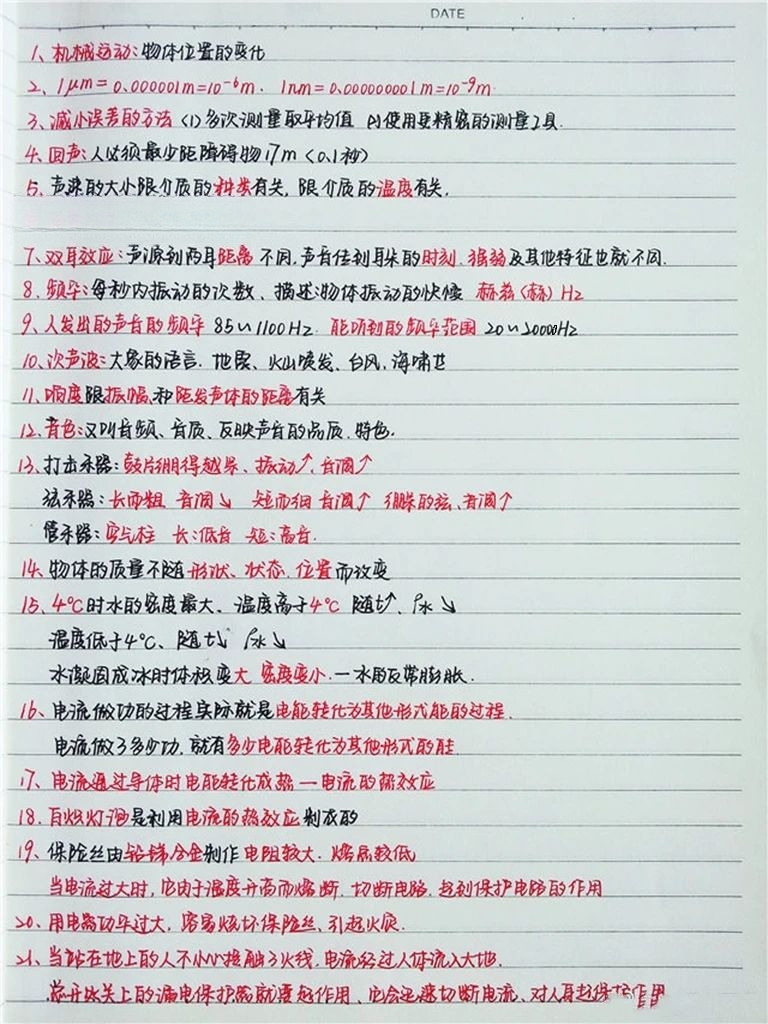 DATE
1、机械运动:物体位置的变化
2、1μm=0.000001m=10⁻⁶m. 1nm=0.000000001m=10⁻⁹m
3、减小误差的方法 (1)多次测量取平均值 (2)使用更精密的测量工具.
4、回声:人必须最少距障碍物17m(0.1秒)
5、声速的大小跟介质的种类有关,跟介质的温度有关.
7、双耳效应:声源到两耳距离不同,声音传到耳朵的时刻、强弱及其他特征也就不同.
8、频率:每秒内振动的次数、描述物体振动的快慢 赫兹(赫)Hz
9、人发出的声音的频率 85~1100Hz. 能听到的频率范围 20~20000Hz
10、次声波:大象的语言. 地震、火山喷发、台风,海啸
11、响度跟振幅、和距发声体的距离有关
12、音色:又叫音频、音质、反映声音的品质.特色.
13、打击乐器:鼓片绷得越紧、振动↑、音调↑
弦乐器:长而粗 音调↘ 短而细 音调↑ 绷紧的弦、音调↑
管乐器:空气柱 长:低音 短:高音.
14、物体的质量不随形状、状态.位置而改变
15、4℃时水的密度最大、温度高于4℃ 随t↑、ρ水↘
温度低于4℃、随t↘ ρ水↘
水凝固成冰时体积变大 密度变小.一水的反常膨胀.
16、电流做功的过程实际就是电能转化为其他形式能的过程.
电流做了多少功.就有多少电能转化为其他形式的能
17、电流通过导体时电能转化成热一电流的热效应
18、白炽灯泡是利用电流的热效应制成的
19、保险丝由铅锑合金制作 电阻较大.熔点较低
当电流过大时,它由于温度升高而熔断.切断电路.起到保护电路的作用
20、用电器功率过大,容易烧坏保险丝、引起火灾.
21、当站在地上的人不小心接触了火线,电流经过人体流入大地.
总开关上的漏电保护器就要起作用、它会迅速切断电流、对人身起保护作用